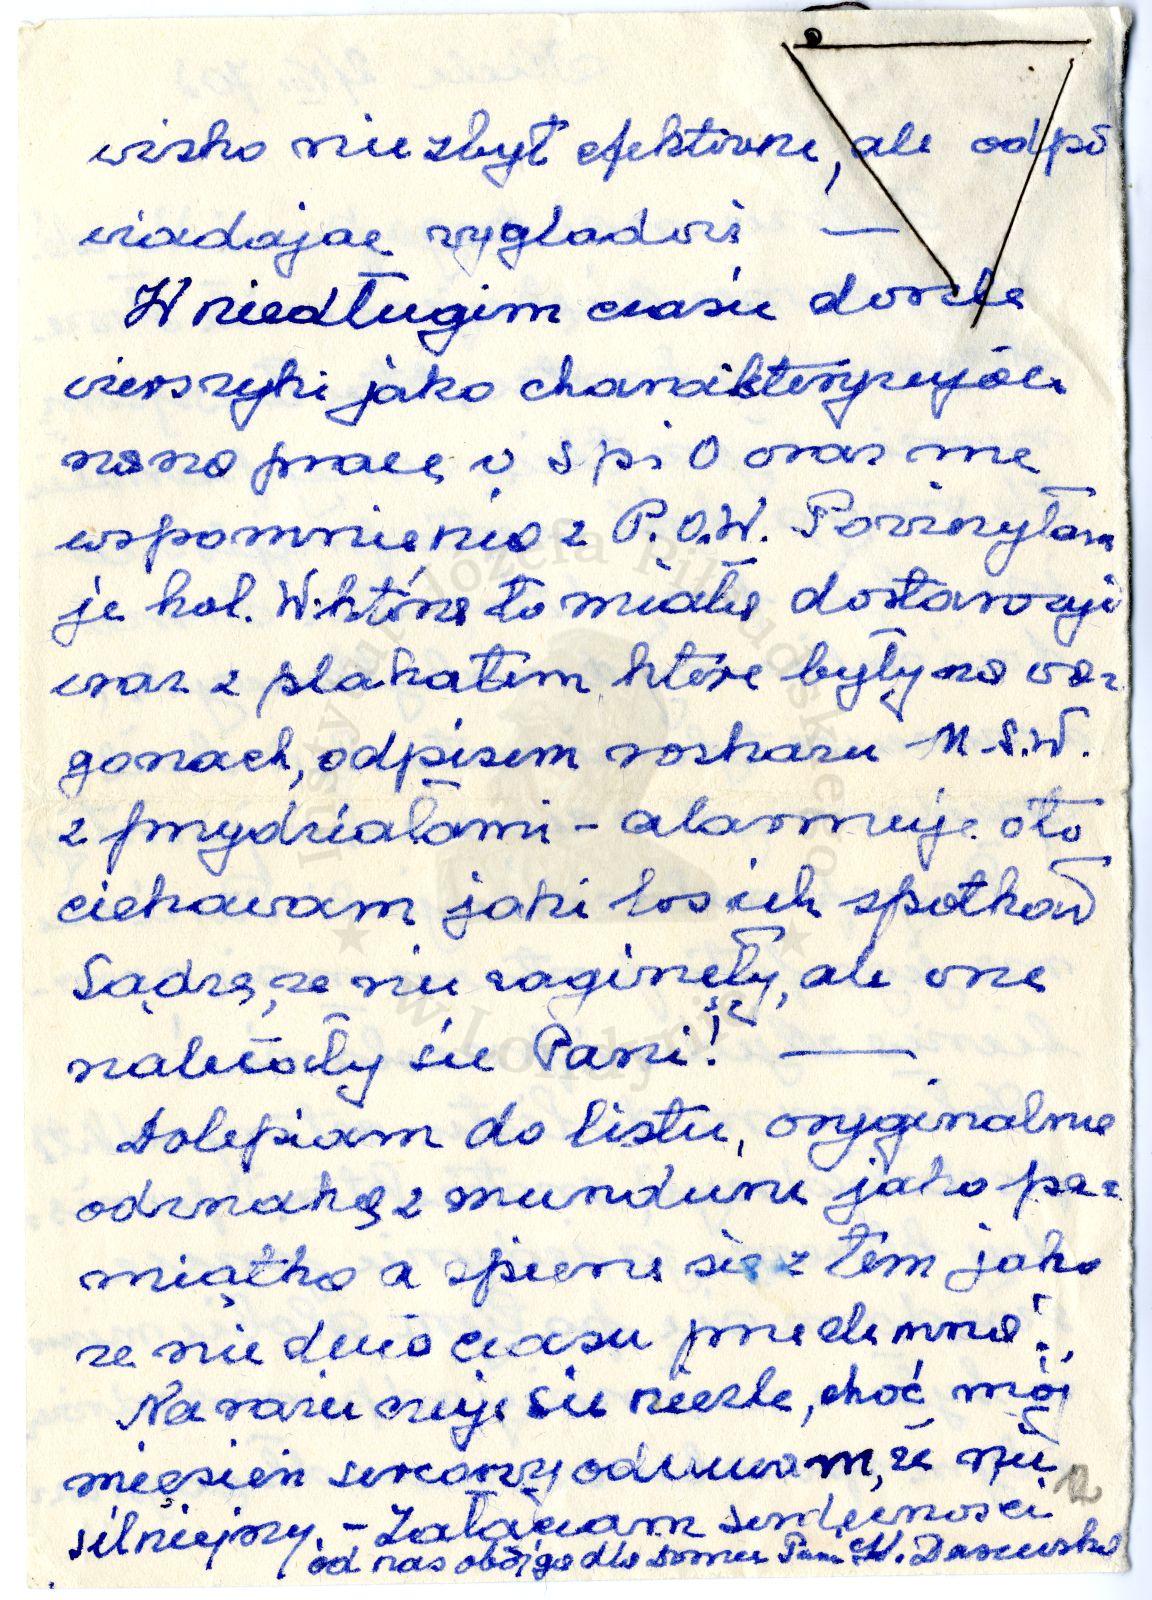 wisko nie zbyt efektowne, ale odpo
wiadające wyglądowi —
W niedługim czasie dorobię
wierszyki jako charakteryzujące
naszą pracę w S pi O oraz me
wspomnienia z P.O.W. Powierzyłam
je kol. W. która to miała dostarczyć
wraz z plakatem które były na wa=
gonach, odpisem rozkazu M.S.W.
z przydziałami - alarmuję o to
ciekawam jaki los ich spotkał
Sądzę, że nie zaginęły, ale one
należały się Pani! —
Dolepiam do listu, oryginalne
odznakę z munduru jako pa=
miątka a spieszę się z tem jako
że nie dużo czasu przedemną!
Na razie czuję się nieźle, choć mój
mięsień sercowy odczuwam, że nie
silniejszy. - Załączam serdeczności
od nas obojga dla Domu Pani W. Daszewska
12
Instytut Józefa Piłsudskiego
w Londynie